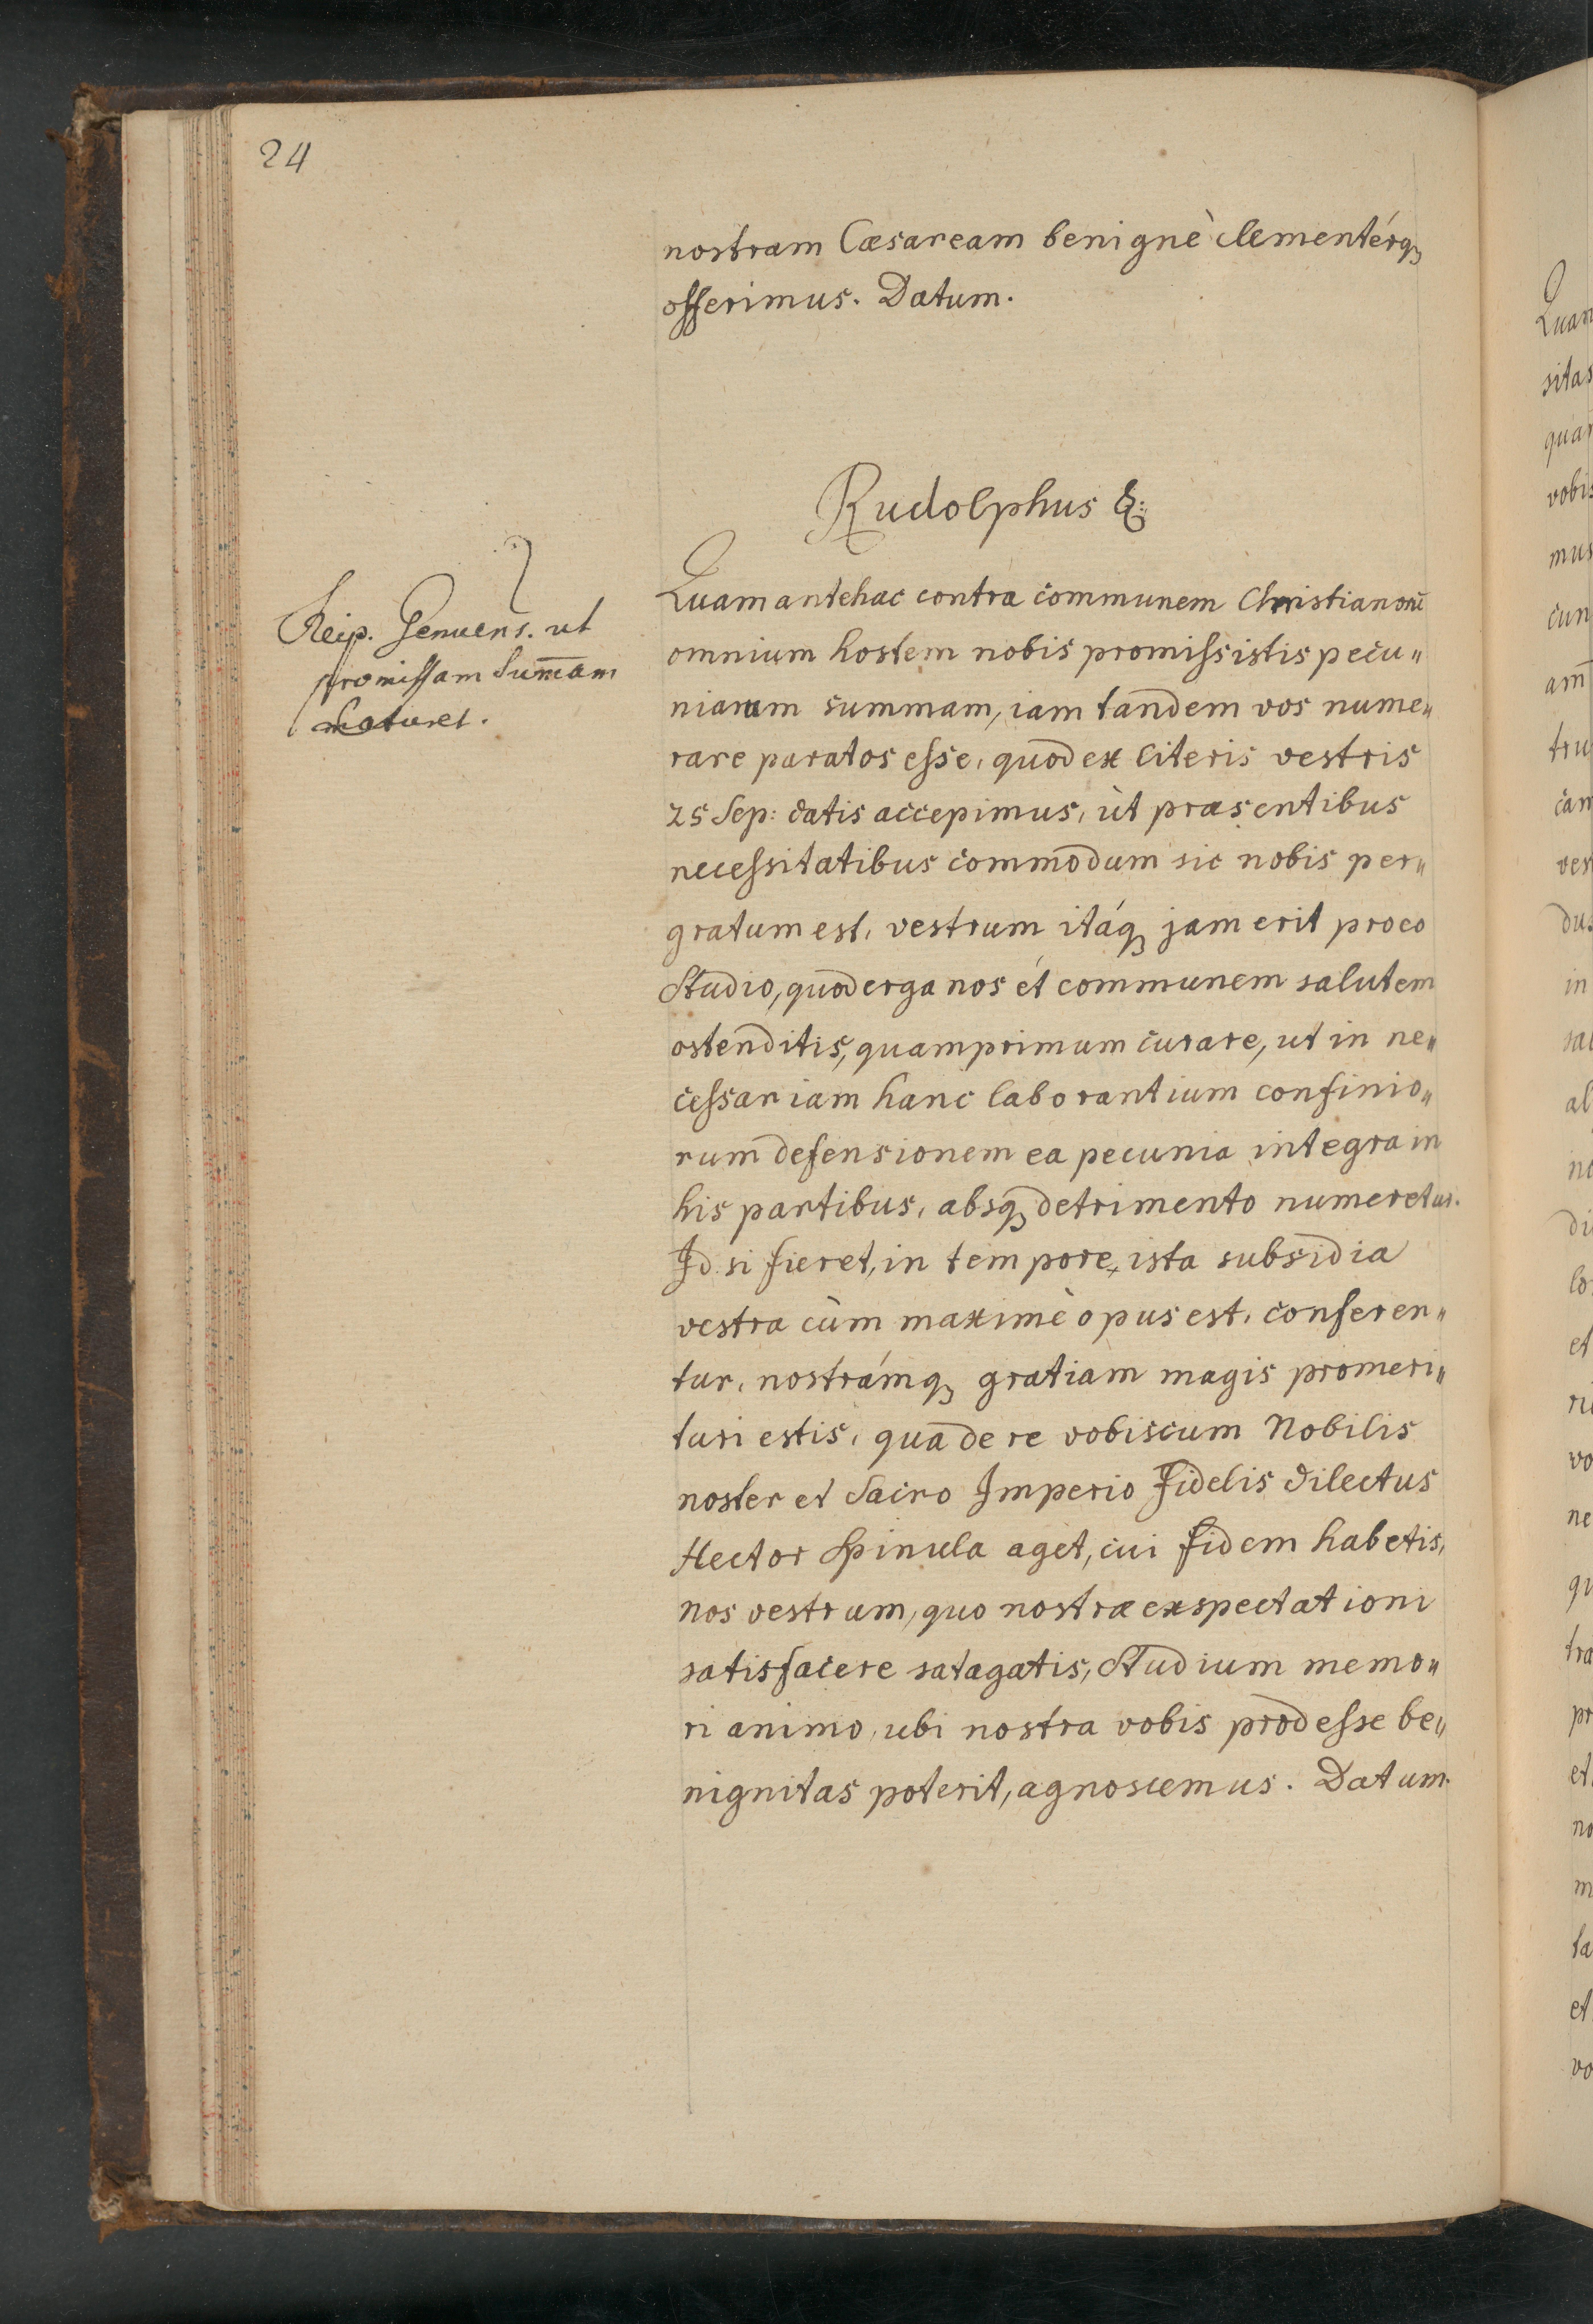 24
nostram Cæsaream benignè clementérq₃
offerimus. Datum.
Rudolphus &c:
Reip. Genuens. ut
promissam Sum̄am
maturet.
Quam antehac contra communem Christianorū
omnium hostem nobis promissistis pecu„
niarum summam, iam tandem vos nume„
rare paratos esse, quod ex literis vestris
25 Sep: datis accepimus, ut præsentibus
necessitatibus commodum sic nobis per„
gratum est, vestrum itáq₃ jam erit pro eo
Studio, quod erga nos et communem salutem
ostenditis, quamprimum curare, ut in ne„
cessariam hanc laborantium confinio„
rum defensionem ea pecunia integra in
his partibus, absq₃ detrimento numeretur.
Id si fieret, in tempore, ista subsidia
vestra cùm maximè opus est, conferen„
tur, nostrámq₃ gratiam magis promeri„
turi estis, qua de re vobiscum Nobilis
noster et Sacro Imperio Fidelis dilectus
Hector Spinula aget, cui fidem habetis,
nos vestrum, quo nostræ exspectationi
satisfacere satagatis, Studium memo„
ri animo, ubi nostra vobis prodesse be„
nignitas poterit, agnoscemus. Datum.
Quam
sitas
vobis
mus